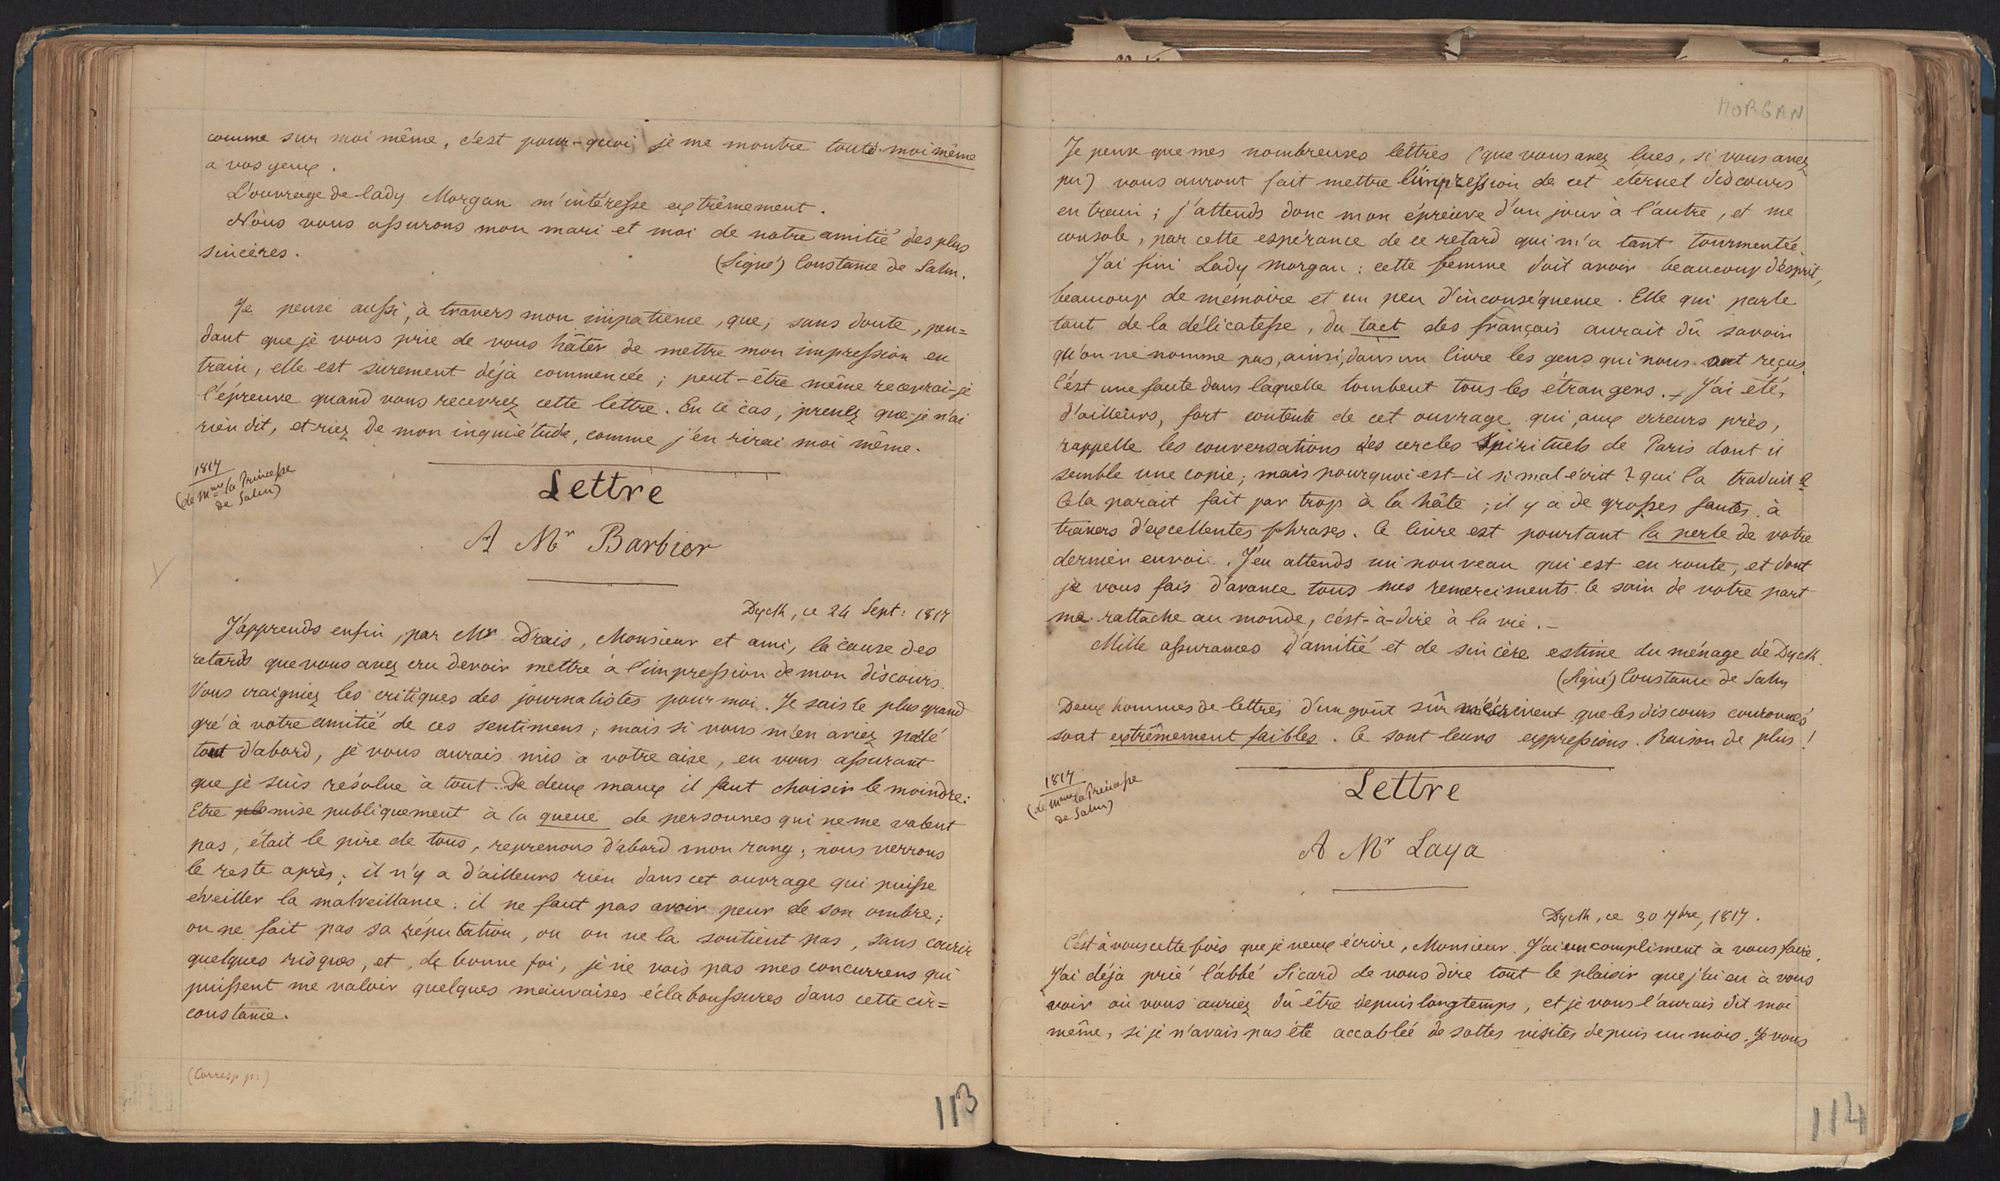 comme sur moi même, c'est pour-quoi je me montre toute moi même
a vos yeux.
L'ouvrage de lady Morgan m'intéresse extrêmement.
Nous vous assurons mon mari et moi de notre amitié des plus
sincères.
(Signé) Constance de Salm.
Je pense aussi, à travers mon impatience, que, sans doute, pen=
dant que je vous prie de vous hâter de mettre mon impression en
train, elle est surement déja commencée ; peut-être même recevrai-je
l'épreuve quand vous recevrez cette lettre. En ce cas, prenez que je n'ai
rien dit, et riez de mon inquiétude, comme j'en rirai moi même.
1817
(de Mme la Princesse
de Salm)
Lettre
A Mr Barbier
Dyck, ce 24 Sept: 1817
J'apprends enfin, par Mr Drais, Monsieur et ami, la cause des
retards que vous avez cru devoir mettre à l'impression de mon discours.
Vous craigniez les critiques des journalistes pour moi. Je sais le plus grand
gré à votre amitié de ces sentimens ; mais si vous m'en aviez parlé
tout d'abord, je vous aurais mis à votre aise, en vous assurant
que je suis résolue à tout. De deux maux il faut choisir le moindre:
Etre mise publiquement à la queue de personnes qui ne me valent
pas, était le pire de tous, reprenons d'abord mon rang ; nous verrons
le reste après ; il n'y a d'ailleurs rien dans cet ouvrage qui puisse
éveiller la malveillance ; il ne faut pas avoir peur de son ombre ;
on ne fait pas sa réputation, ou on ne la soutient pas, sans courir
quelques risques, et, de bonne foi, je ne vois pas mes concurrens qui
puissent me valoir quelques mauvaises éclaboussures dans cette cir=
constance.
(Corresp pr)
113
MORGAN
Je pense que mes nombreuses lettres (que vous avez lues, si vous avez
pu) vous auront fait mettre l'impression de cet eternel discours
en train ; j'attends donc mon épreuve d'un jour à l'autre, et me
console, par cette espérance de ce retard qui m'a tant tourmentée.
J'ai fini Lady Morgan : cette femme doit avoir beaucoup d'esprit,
beaucoup de mémoire et un peu d'inconséquence. Elle qui parle
tant de la délicatesse, du tact des français aurait dû savoir
qu'on ne nomme pas, ainsi, dans un livre les gens qui nous ont reçus.
C'est une faute dans laquelle tombent tous les étrangers. J'ai été,
d'ailleurs, fort contente de cet ouvrage, qui, aux erreurs près,
rappelle les conversations des cercles spirituels de Paris dont il
semble une copie ; mais pourquoi est-il si mal écrit ? qui l'a traduit ?
Cela parait fait par trop à la hâte ; il y a de grosses fautes à
travers d'excellentes phrases. Ce livre est pourtant la perle de votre
dernier envoi. J'en attends un nouveau qui est en route, et dont
je vous fais d'avance tous mes remerciments. Ce soin de votre part
me rattache au monde, c'est-à-dire à la vie. –
Mille assurances d'amitié et de sincère estime du ménage de Dyck.
(Signé) Constance de Salm
Deux hommes de lettres d'un goût sûr m'écrivent que les discours couronnés
sont extrêmement faibles. Ce sont leurs expressions. Raison de plus !
1817
(de Mme la Princesse
de Salm)
Lettre
A Mr Laya
Dyck, ce 30 7bre, 1817.
C'est à vous cette fois que je veux écrire, Monsieur. J'ai un compliment à vous faire.
J'ai déja prié l'abbé Sicard de vous dire tout le plaisir que j'ai eu à vous
voir où vous auriez dû être depuis longtemps, et je vous l'aurais dit moi
même, si je n'avais pas été accablée de sottes visites depuis un mois. Je vous
114